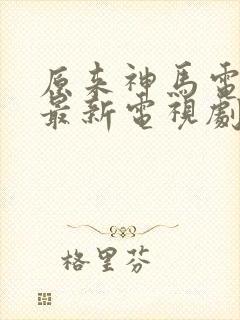 原来神馬電
最新電視劇
格里芬